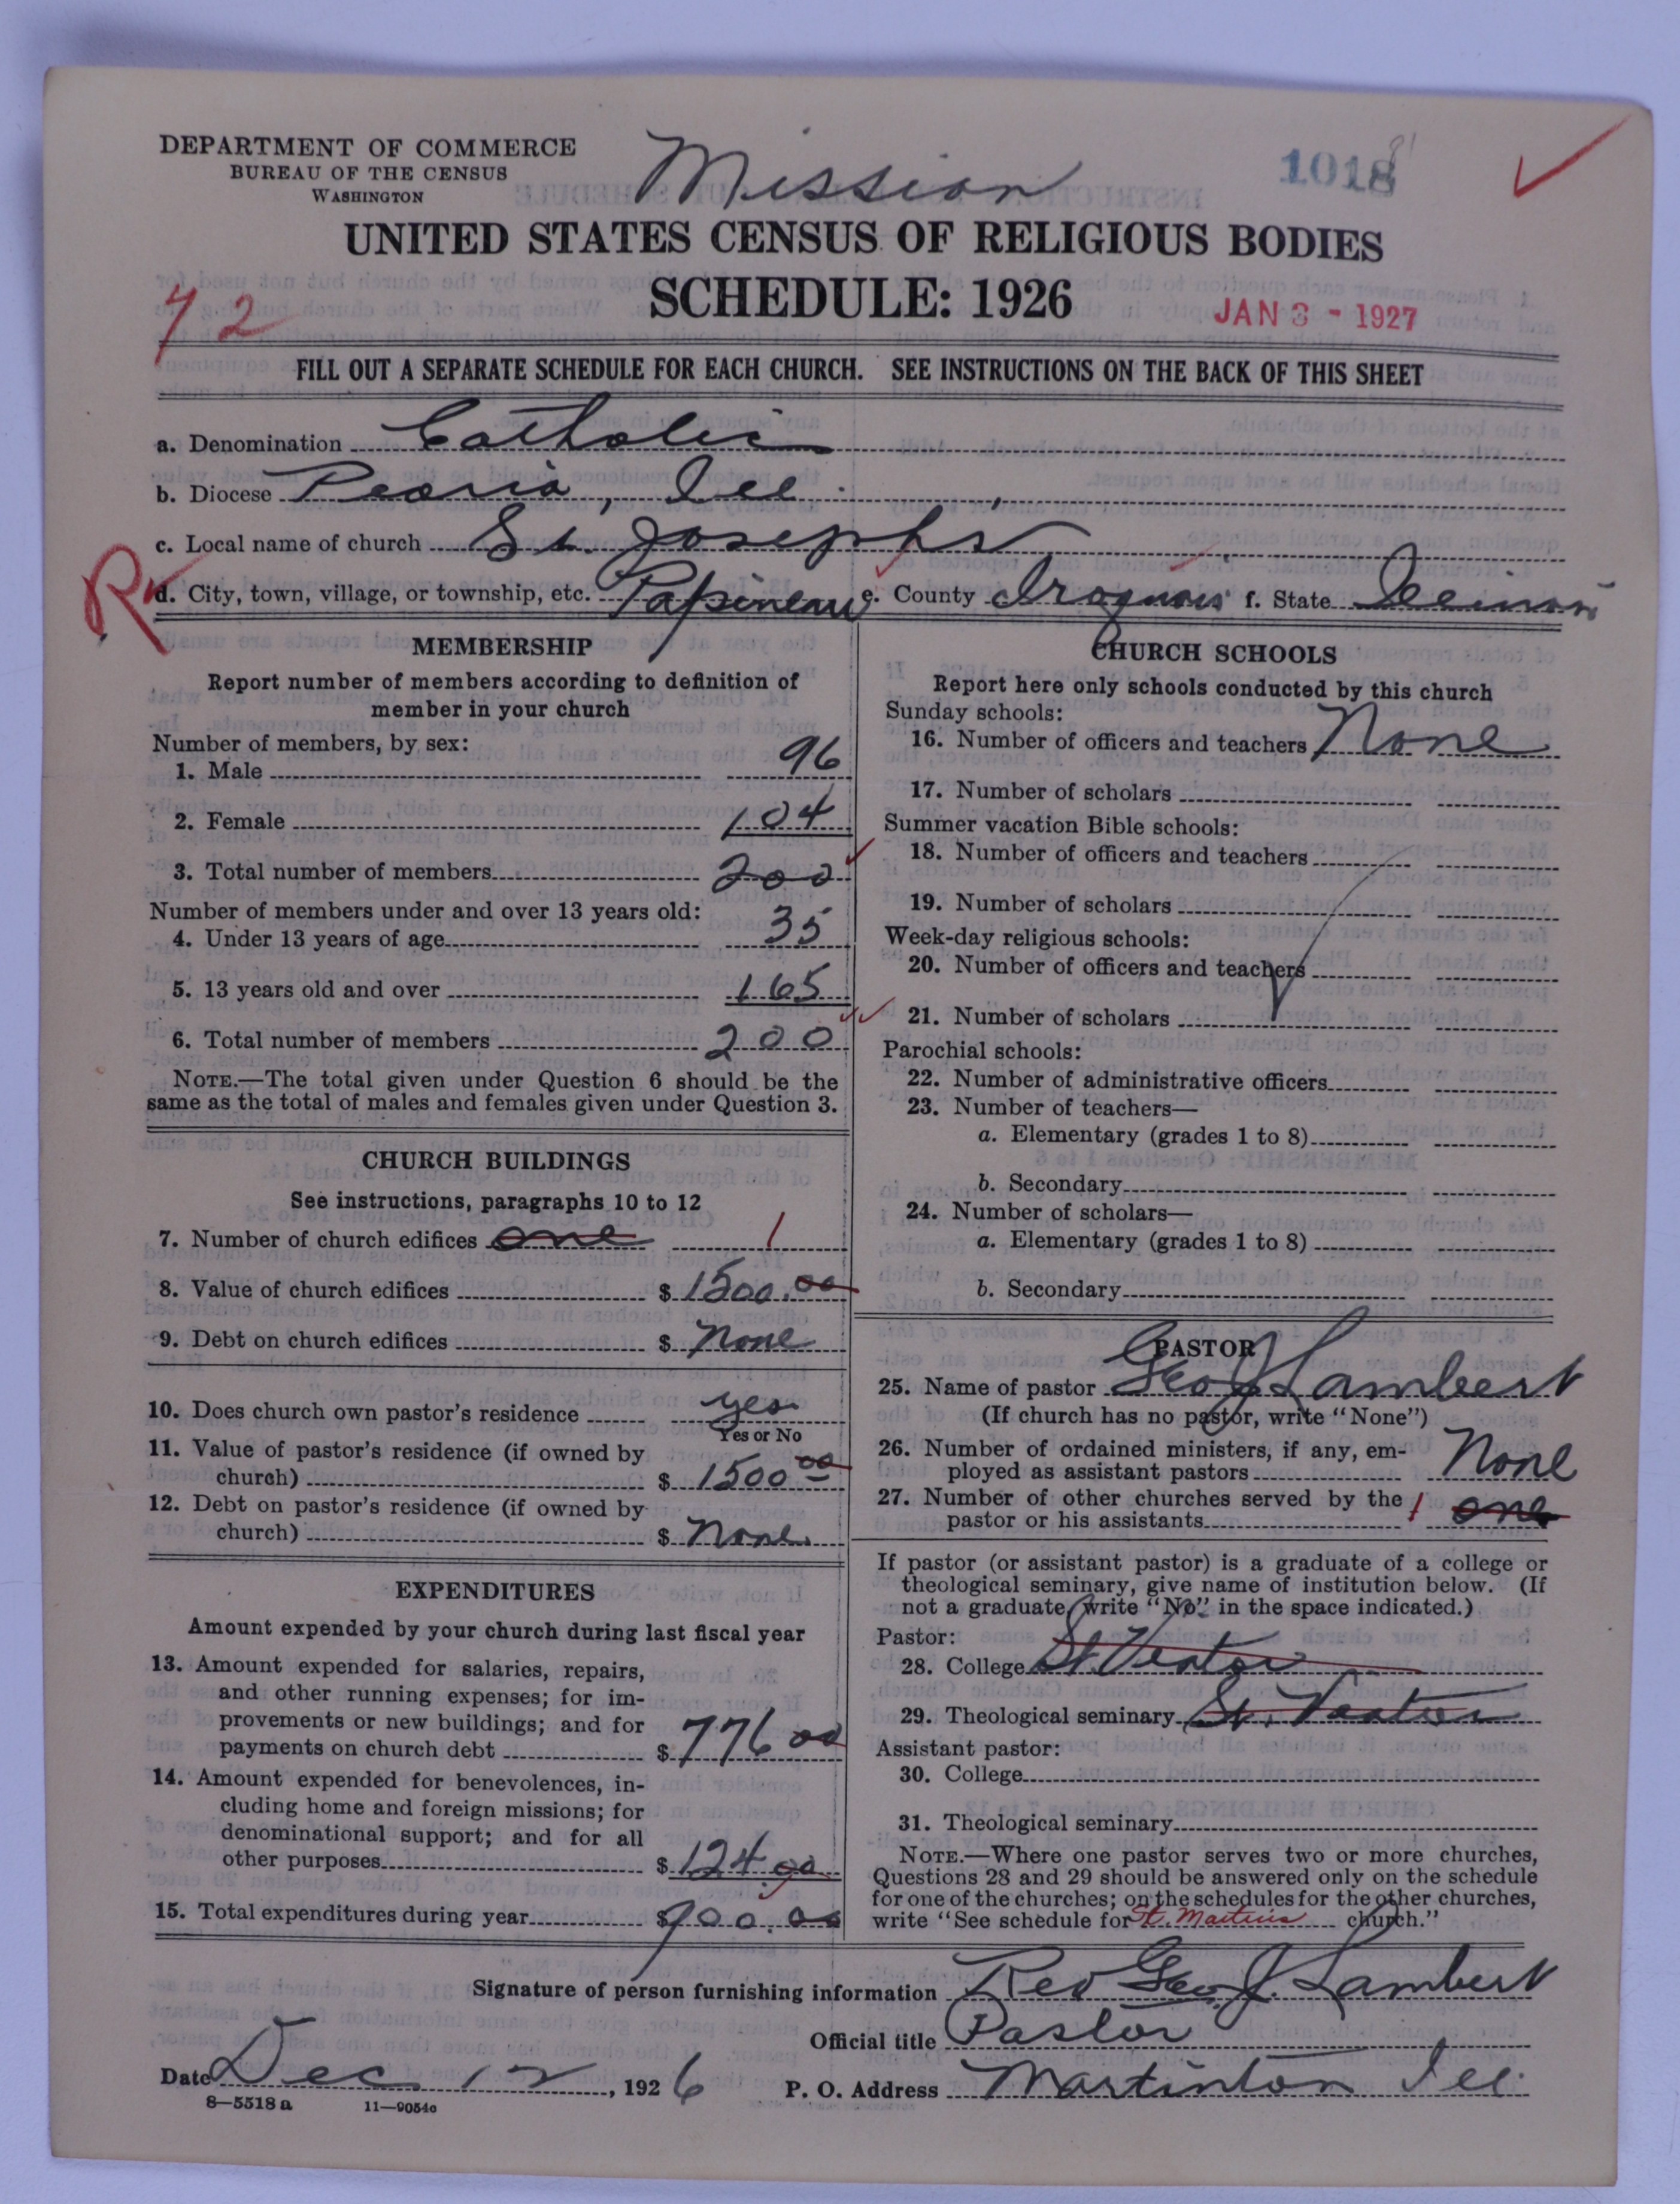 DEPARTMENT OF COMMERCE
BUREAU OF THE CENSUS
WASHINGTON
Mission
1018
UNITED STATES CENSUS OF RELIGIOUS BODIES
SCHEDULE: 1926
JAN 3 - 1927
72
FILL OUT A SEPARATE SCHEDULE FOR EACH CHURCH. SEE INSTRUCTIONS ON THE BACK OF THIS SHEET
a. Denomination Catholic
b. Diocese Peoria, Ill.
c. Local name of church St. Josephs
R d. City, town, village, or township, etc. Papineau e. County Iroquois f. State Illinois
MEMBERSHIP
Report number of members according to definition of
member in your church
Number of members, by sex:
1. Male 96
2. Female 104
3. Total number of members 200
Number of members under and over 13 years old:
4. Under 13 years of age 35
5. 13 years old and over 165
6. Total number of members 200
NOTE.—The total given under Question 6 should be the
same as the total of males and females given under Question 3.
CHURCH BUILDINGS
See instructions, paragraphs 10 to 12
7. Number of church edifices one 1
8. Value of church edifices $ 1500.00
9. Debt on church edifices $ None
10. Does church own pastor's residence yes
Yes or No
11. Value of pastor's residence (if owned by
church) $ 1500 00
12. Debt on pastor's residence (if owned by
church) $ None.
EXPENDITURES
Amount expended by your church during last fiscal year
13. Amount expended for salaries, repairs,
and other running expenses; for im-
provements or new buildings; and for
payments on church debt $ 776 00
14. Amount expended for benevolences, in-
cluding home and foreign missions; for
denominational support; and for all
other purposes $ 124.00
15. Total expenditures during year $ 900.00
CHURCH SCHOOLS
Report here only schools conducted by this church
Sunday schools:
16. Number of officers and teachers None
17. Number of scholars
Summer vacation Bible schools:
18. Number of officers and teachers
19. Number of scholars
Week-day religious schools:
20. Number of officers and teachers
21. Number of scholars
Parochial schools:
22. Number of administrative officers
23. Number of teachers—
a. Elementary (grades 1 to 8)
b. Secondary
24. Number of scholars—
a. Elementary (grades 1 to 8)
b. Secondary
PASTOR
25. Name of pastor Geo J Lambert
(If church has no pastor, write "None")
26. Number of ordained ministers, if any, em-
ployed as assistant pastors None
27. Number of other churches served by the
pastor or his assistants 1 one
If pastor (or assistant pastor) is a graduate of a college or
theological seminary, give name of institution below. (If
not a graduate, write "No" in the space indicated.)
Pastor:
28. College St. Viator
29. Theological seminary St. Viator
Assistant pastor:
30. College
31. Theological seminary
NOTE.—Where one pastor serves two or more churches,
Questions 28 and 29 should be answered only on the schedule
for one of the churches; on the schedules for the other churches,
write "See schedule for St. Martins church."
Signature of person furnishing information Rev Geo. J. Lambert
Official title Pastor
Date Dec 12, 1926 P. O. Address Martinton Ill.
8—5518 a 11—9054c